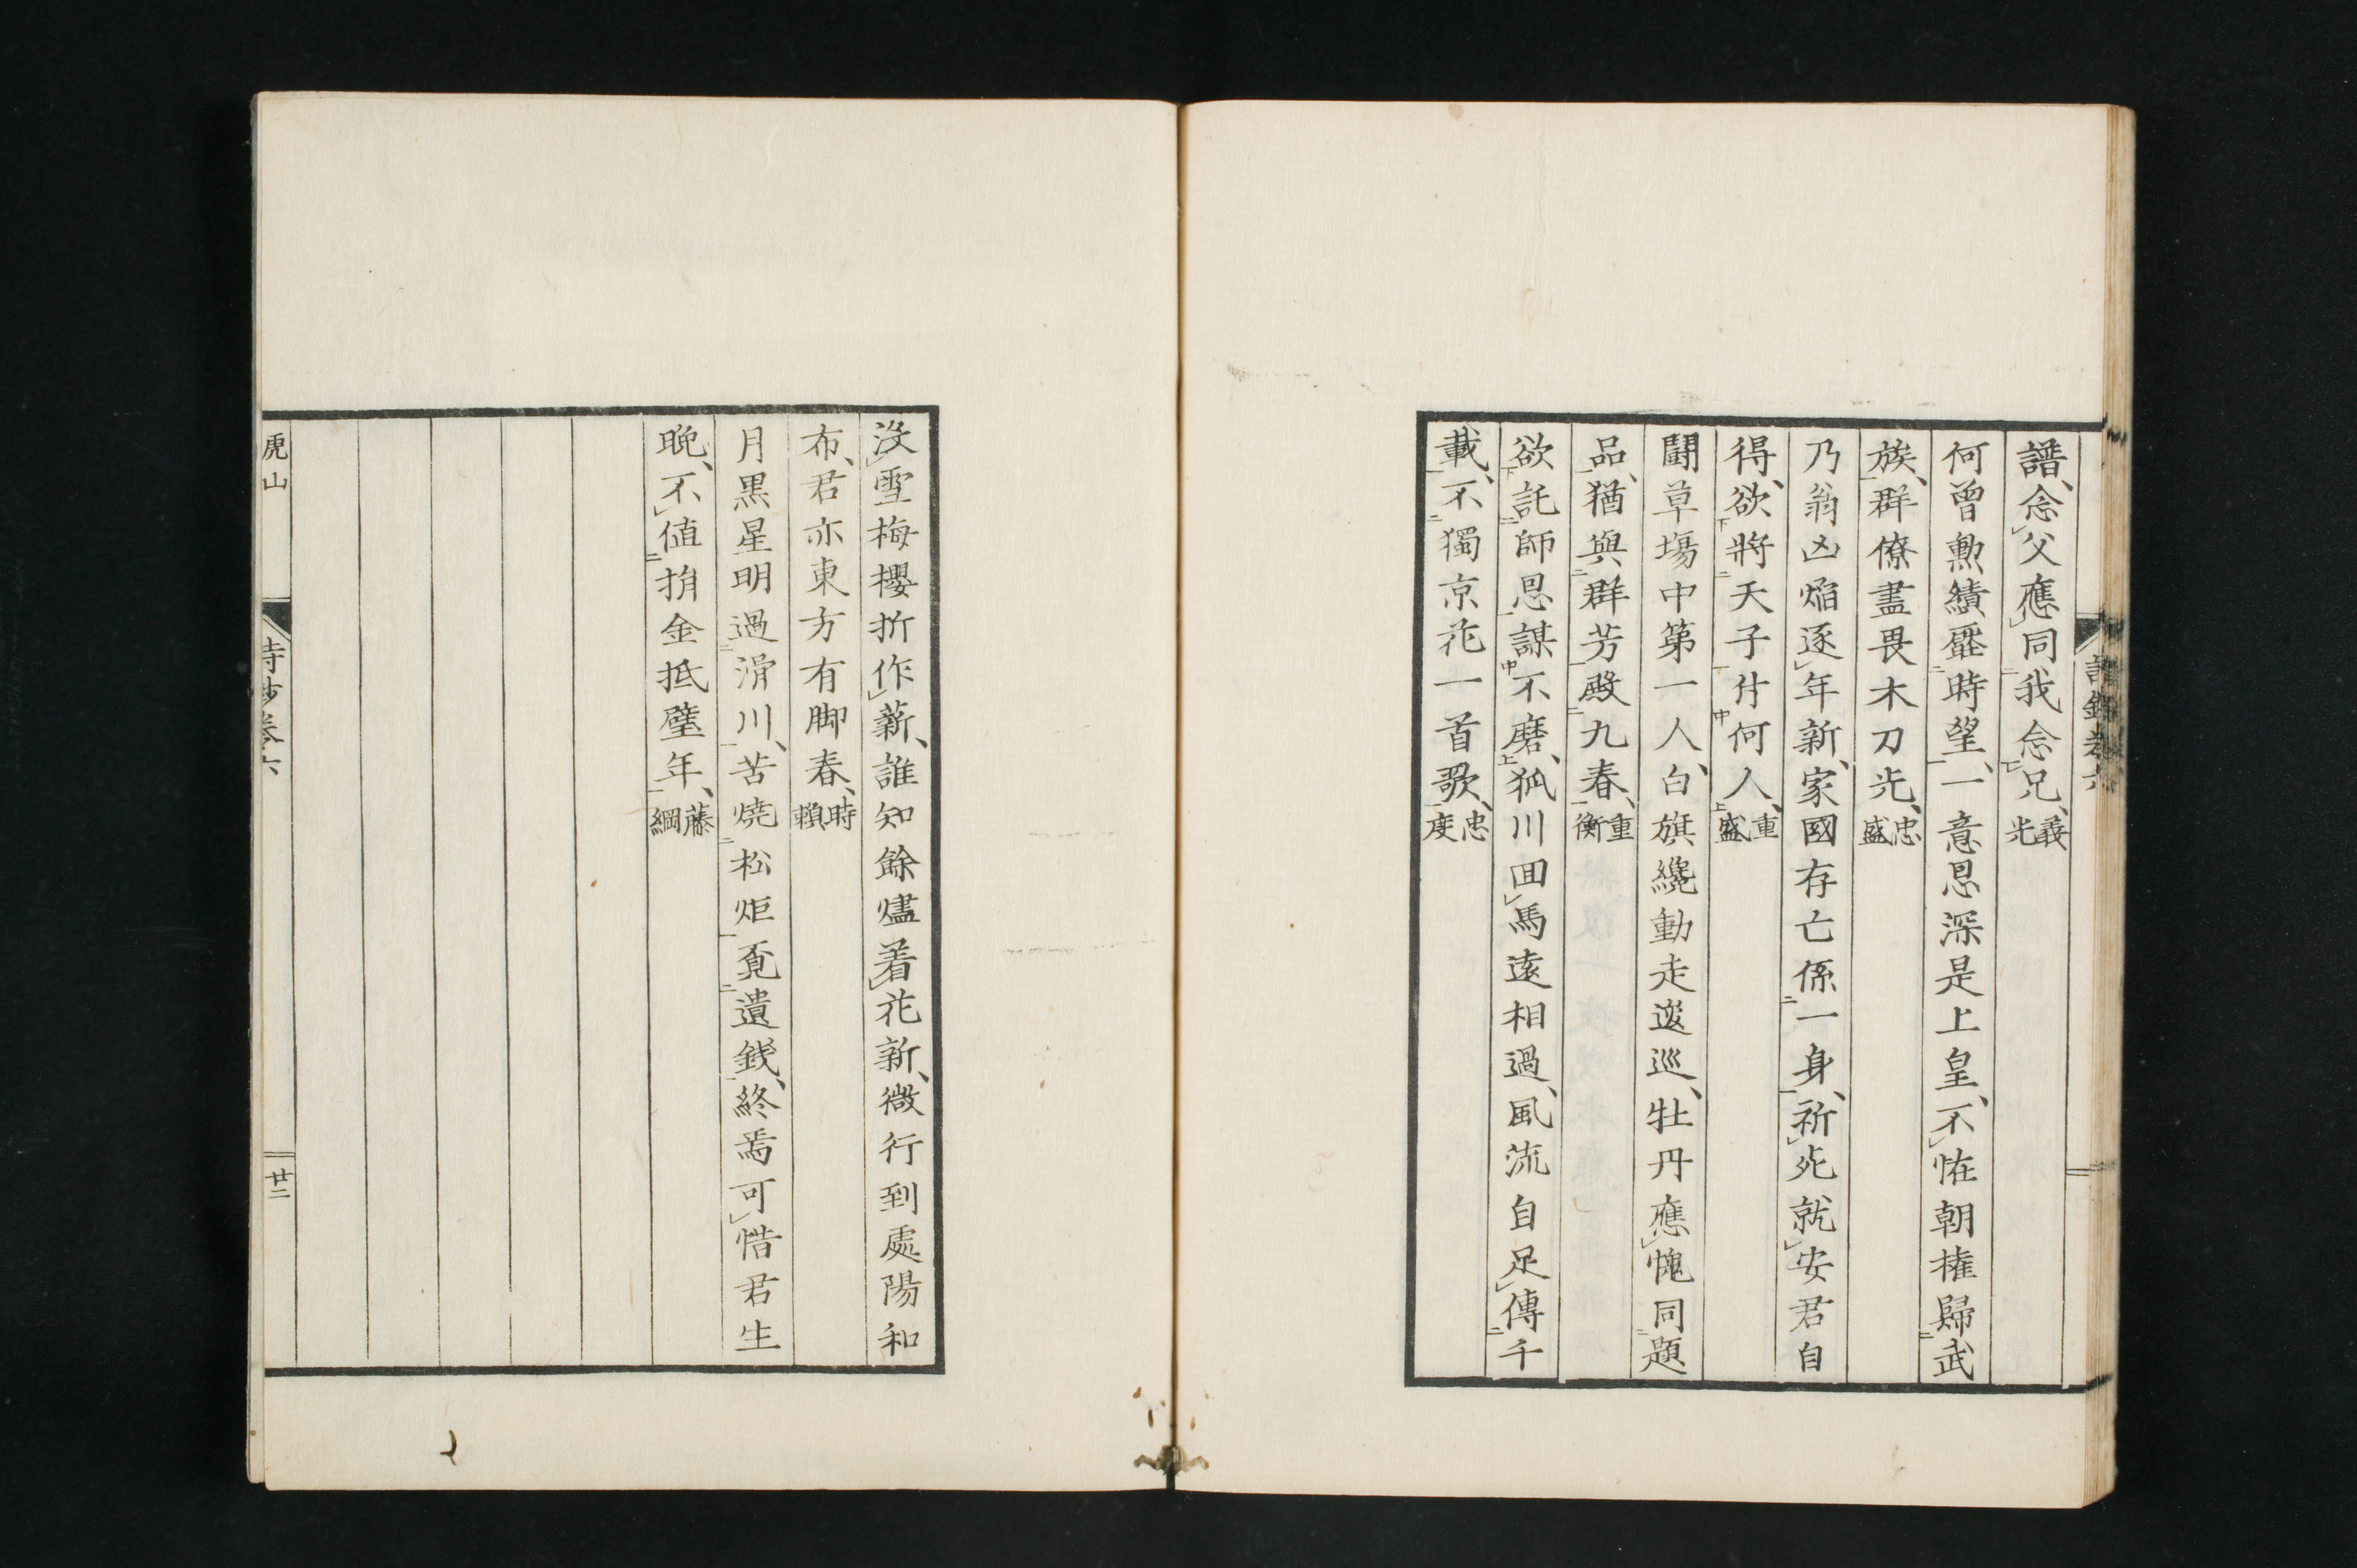 譜、念父應同我念兄、義光
何曾勲績壓時望、一意恩深是上皇、不恠朝權歸武
族、群僚盡畏木刀光、忠盛
乃翁凶焔逐年新、家國存亡係一身、祈死就安君自
得、欲將天子付何人、重盛
鬪草塲中第一人、白旗纔動走逡巡、牡丹應愧同題
品、猶與群芳殿九春、重衡
欲託師恩謀不磨、狐川回馬遠相過、風流自足傳千
載、不獨京花一首歌、忠度
沒雪梅櫻折作薪、誰知餘燼着花新、微行到處陽和
布、君亦東方有脚春、時頼
月黒星明過滑川、苦燒松炬覔遺錢、終焉可惜君生
晩、不値捐金抵璧年、藤綱
虎山
詩鈔卷六
廿二